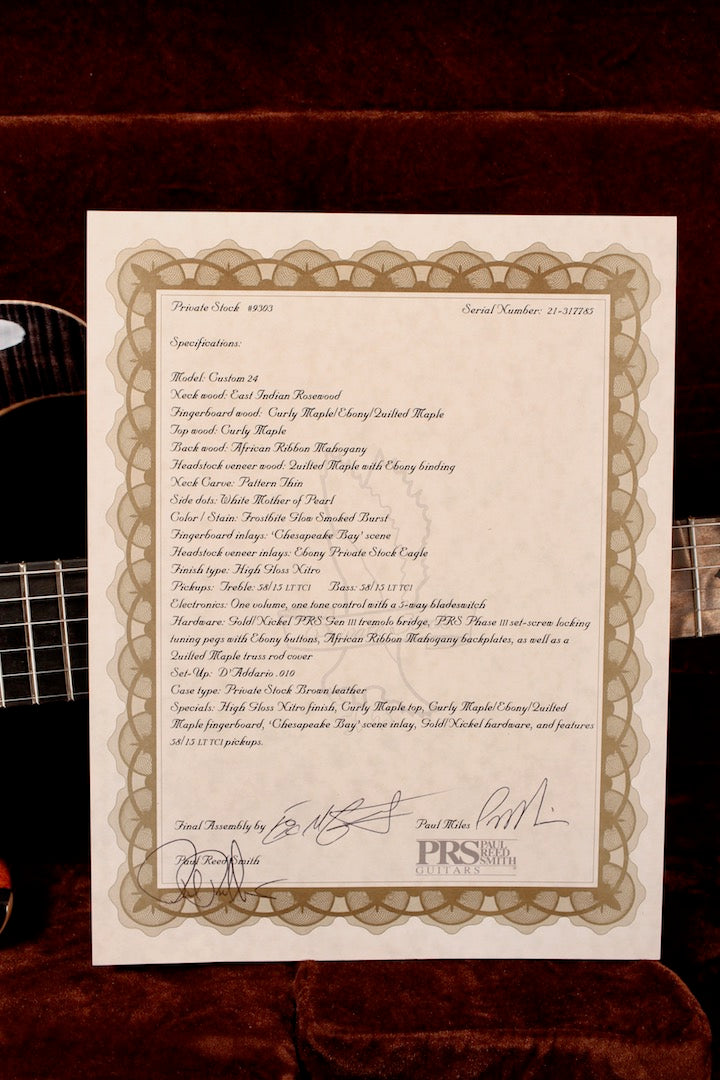 Private Stock #9303 Serial Number: 21-317785
Specifications:
Model: Custom 24
Neck wood: East Indian Rosewood
Fingerboard wood: Curly Maple/Ebony/Quilted Maple
Top wood: Curly Maple
Back wood: African Ribbon Mahogany
Headstock veneer wood: Quilted Maple with Ebony binding
Neck Carve: Pattern Thin
Side dots: White Mother of Pearl
Color / Stain: Frostbite Glow Smoked Burst
Fingerboard inlays: 'Chesapeake Bay' scene
Headstock veneer inlays: Ebony Private Stock Eagle
Finish type: High Gloss Nitro
Pickups: Treble: 58/15 LT TCI Bass: 58/15 LT TCI
Electronics: One volume, one tone control with a 5-way bladeswitch
Hardware: Gold/Nickel PRS Gen III tremolo bridge, PRS Phase III set-screw locking
tuning pegs with Ebony buttons, African Ribbon Mahogany backplates, as well as a
Quilted Maple truss rod cover
Set-Up: D'Addario .010
Case type: Private Stock Brown leather
Specials: High Gloss Nitro finish, Curly Maple top, Curly Maple/Ebony/Quilted
Maple fingerboard, 'Chesapeake Bay' scene inlay, Gold/Nickel hardware, and features
58/15 LT TCI pickups.
Final Assembly by Paul Miles
Paul Reed Smith
PRS PAUL
REED
SMITH
GUITARS